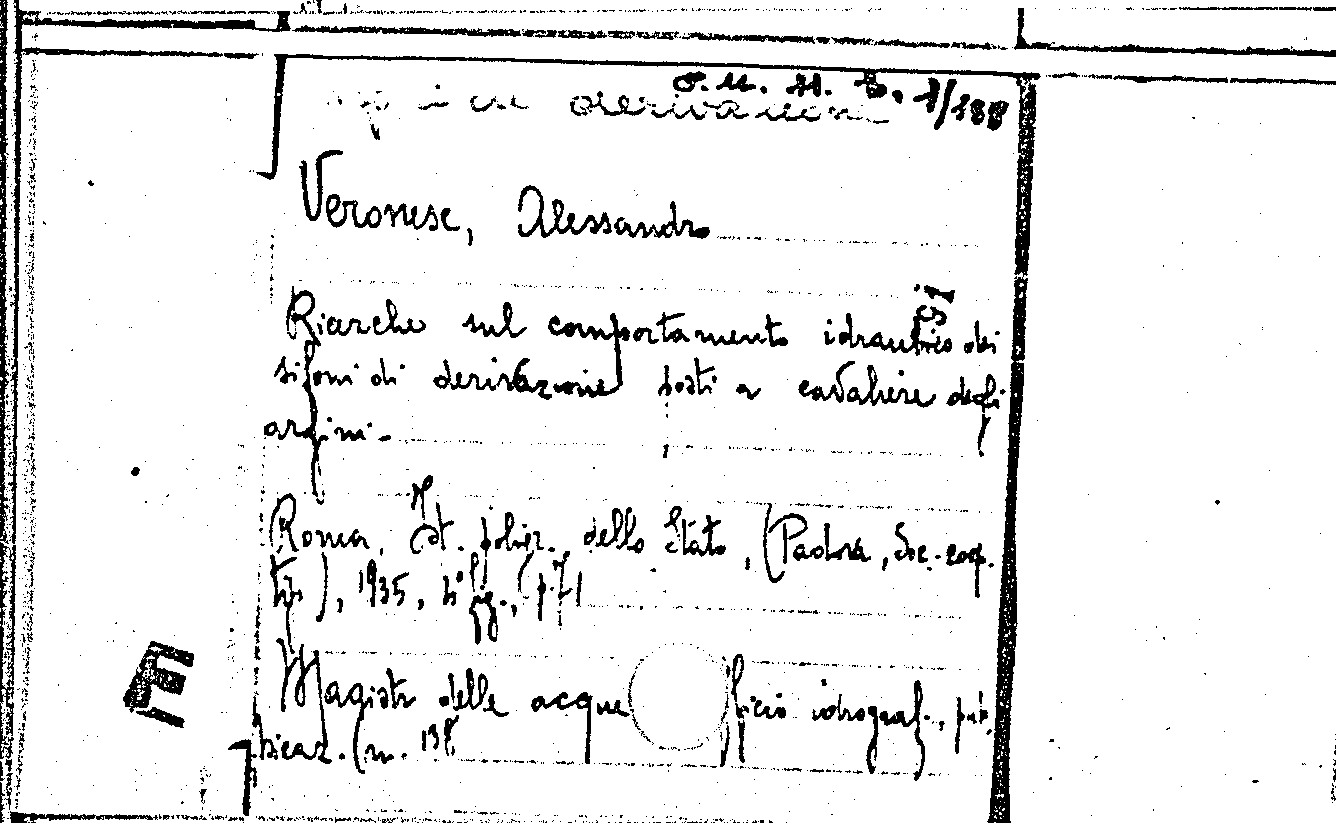 O. M. M. B. 1/188
derivazioni
Veronese, Alessandro
Si
Ricerche sul comportamento idraulico dei
sifoni di derivazione posti a cavaliere degli
argini.
Roma, Ist. poligr. dello Stato, (Padova, Soc. coop.
tip), 1935, 4° fig., p. 71
Magistr delle acque ficio idrograf., pub
blicaz. (n. 138
E